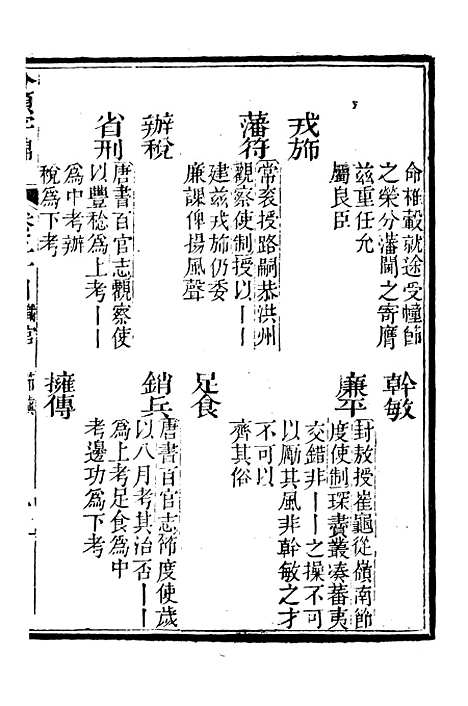 命推轂就途受幢節
之榮分藩閫之寄膺
茲重任允
屬良臣
幹敏
戎斾
廉平
封敖授崔龜從嶺南節
度使制琛賮叢湊蕃夷
交錯非——之操不可
以厲其風非幹敏之才
不可以
齊其俗
藩符
常袞授路嗣恭洪州
觀察使制授以——
建茲戎斾仍委
廉課俾揚風聲
足食
辦稅
銷兵
唐書百官志節度使歲
以八月考其治否——
爲上考足食爲中
考邊功爲下考
省刑
唐書百官志觀察使
以豐稔爲上考——
爲中考辦
稅爲下考
擁傳
職官 節鎮